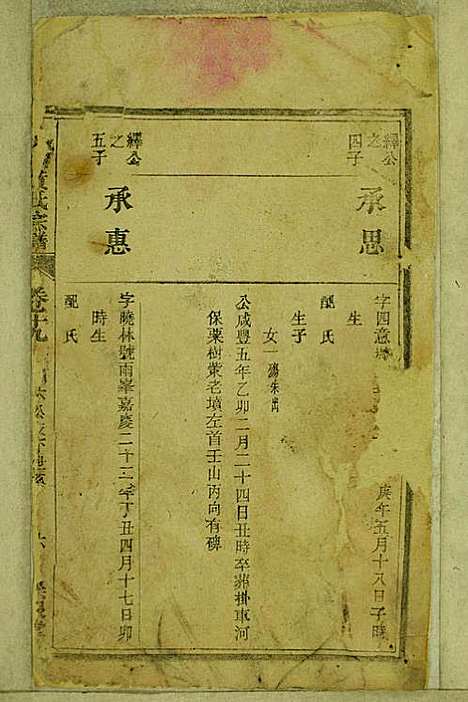 繹公
之
四子
承思
字四意
庚午五月十八日子時
生
配 氏
生子
女一 適朱
公咸豐五年乙卯二月二十四日丑時卒葬掛車河
保栗樹
老墳左首壬山丙向有碑
繹公
之
五子
承惠
字曉林號雨峯嘉慶二十二年丁丑四月十七日卯
時生
配 氏
氏宗譜
卷十九